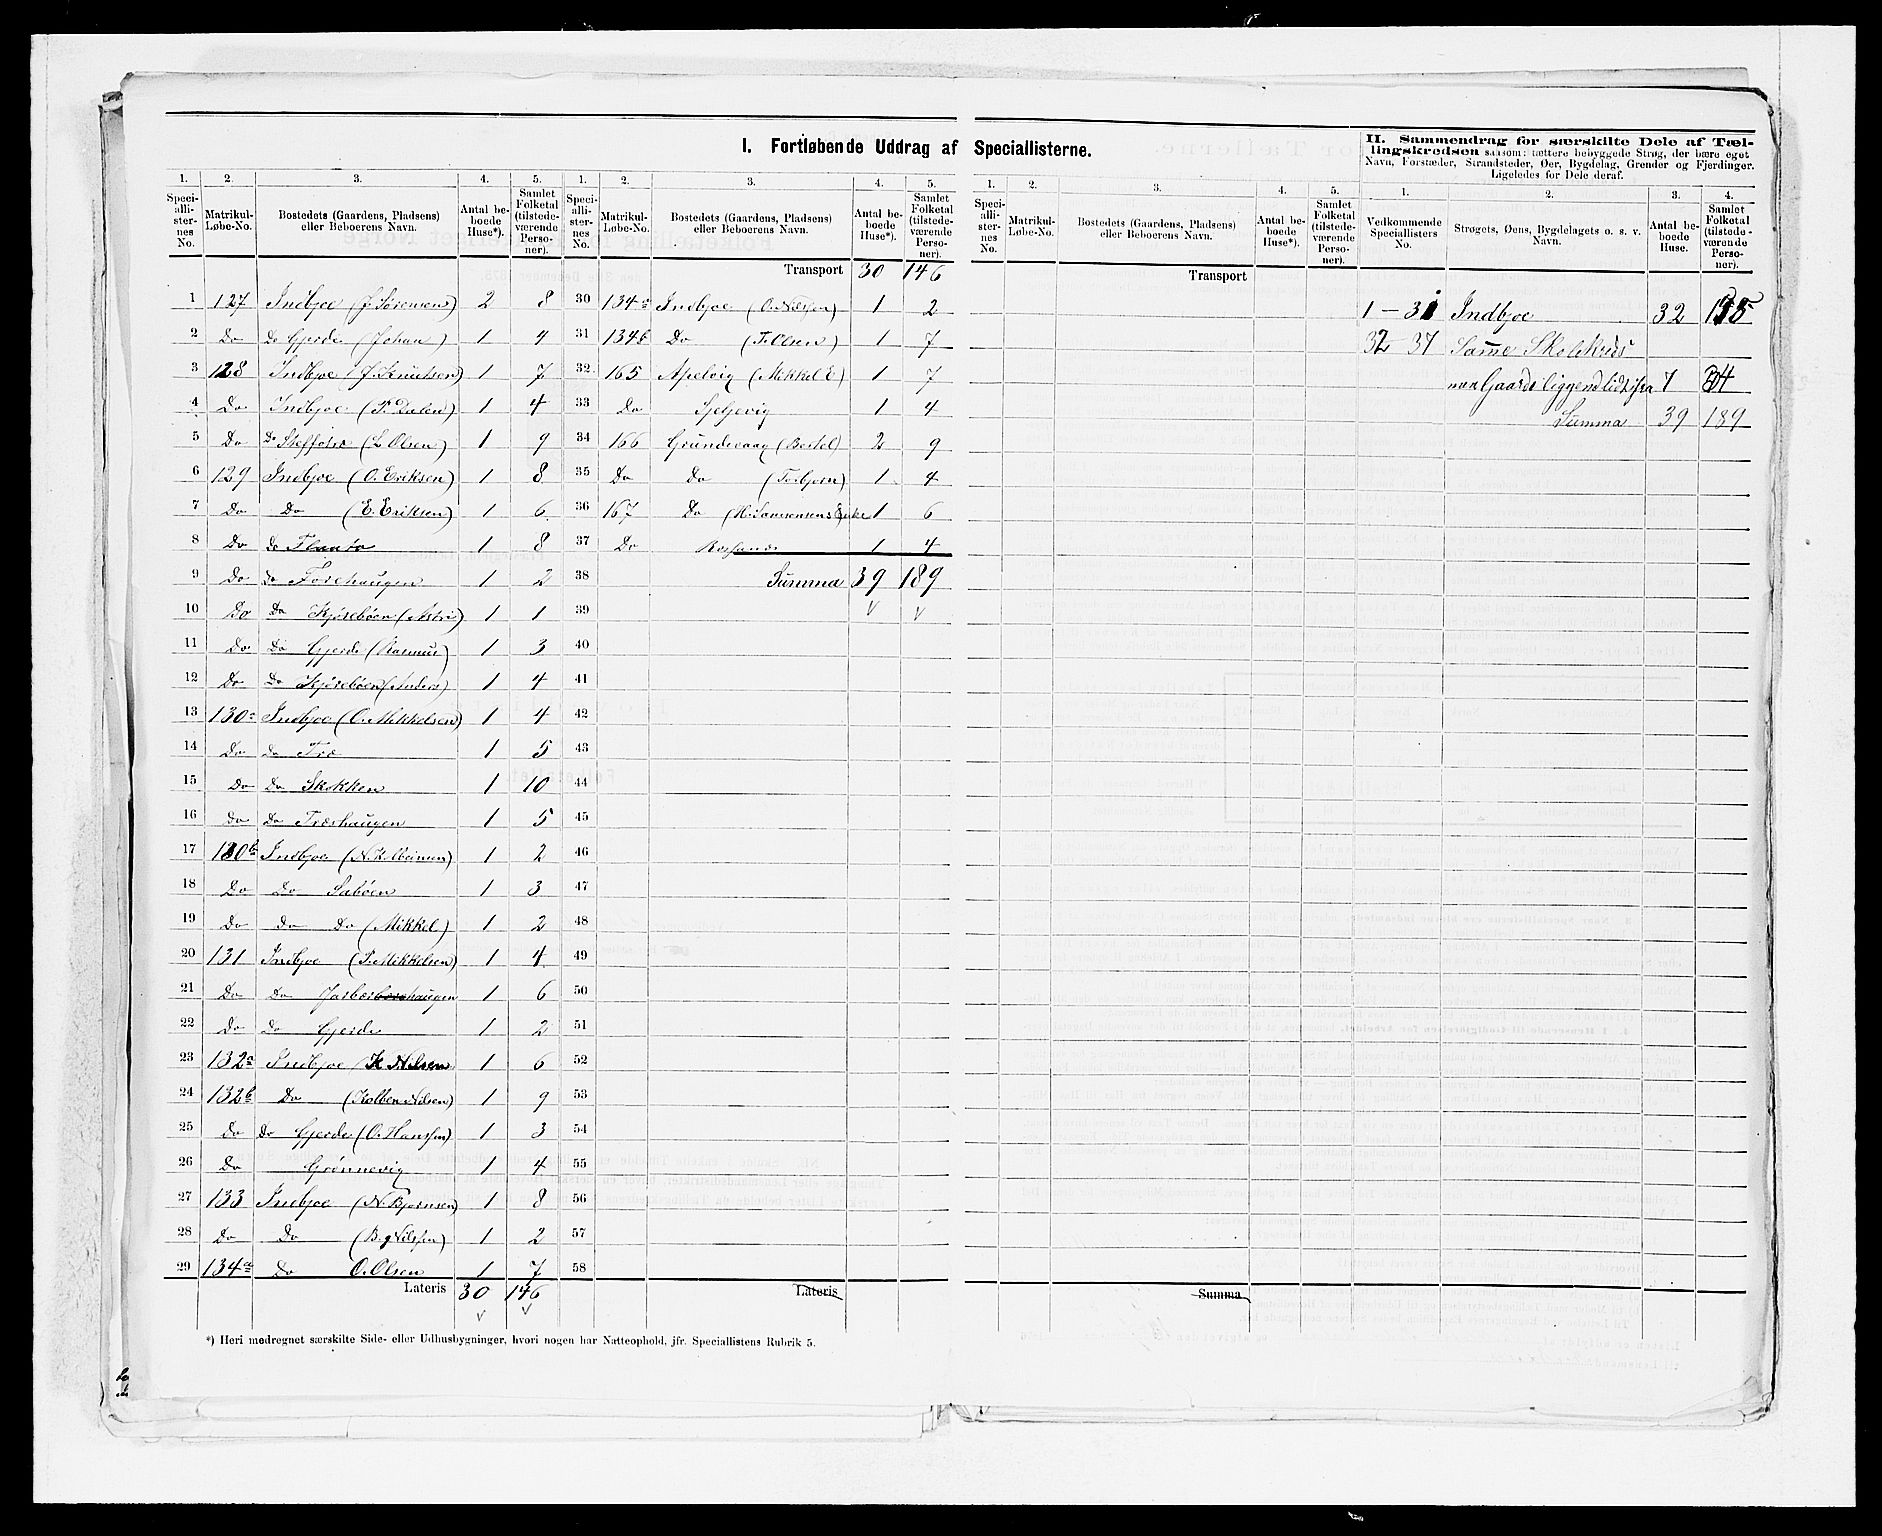 I. Fortløbende Uddrag af Speciallisterne.
II. Sammendrag for særskilte Dele af Tæl-
lingskredsen saasom: tættere bebyggede Strøg, der bære eget
Navn, Forstæder, Strandsteder, Øer, Bygdelag, Grender og Fjerdinger.
Ligeledes for Dele deraf.
1. 2. 3. 4. 5. 1. 2. 3. 4. 5. 1. 2. 3. 4. 5. 1. 2. 3. 4.
Speciallisternes No. Matrikul-Løbe-No. Bostedets (Gaardens, Pladsens) eller Beboerens Navn. Antal beboede Huse*). Samlet Folketal (tilstedeværende Personer).
1 127 Indbjoe (J. Sørensen) 2 8
2 Do Do Gjerde (Johan) 1 4
3 128 Indbjoe (J. Knutsen) 1 7
4 Do Indbjoe (P. Dalen) 1 4
5 Do Do (L Olsen) 1 9
6 129 Indbjoe (O. Eriksen) 1 8
7 Do Do (E. Eriksen) 1 6
8 Do Do 1 8
9 Do Do Forehaugen 1 2
10 Do Do Kjørebøen (Astri) 1 1
11 Do Do Gjerde (Rasmus) 1 3
12 Do Do Kjørebøen (Anders) 1 4
13 130a Indbjoe (O. Mikkelsen) 1 4
14 Do Do Træ 1 5
15 Do Do Skokken 1 10
16 Do Do Træshaugen 1 5
17 130b Indbjoe (N. Kolbeinsen) 1 2
18 Do Do Sabøen 1 3
19 Do Do Do (Mikkel) 1 2
20 131 Indbjoe (P. Mikkelsen) 1 4
21 Do Do 1 6
22 Do Do Gjerde 1 2
23 132a Indbjoe (K Nilsen 1 6
24 132b Do (Kolben Nilsen) 1 9
25 Do Do Gjerde (O. Hanssen) 1 3
26 Do Grønnevig 1 4
27 133 Indbjoe (N. Bjørnsen) 1 8
28 Do Do (B. Nilssen) 1 2
29 134a Do O. Olsen 1 7
Lateris 30 146
Speciallisternes No. Matrikul-Løbe-No. Bostedets (Gaardens, Pladsens) eller Beboerens Navn. Antal beboede Huse*). Samlet Folketal (tilstedeværende Personer).
Transport 30 146
30 134 Indbjoe (O. Nilssen) 1 2
31 134b Do (T. Olsen) 1 7
32 165 Apelvig (Mikkel E) 1 7
33 Do Seljevig 1 4
34 166 Grundevaag (Bertel) 2 9
35 Do Do (Torbjørn) 1 4
36 167 Do (H. Samsonsens Enke 1 6
37 Do 1 4
38 Summa 39 189
39
40
41
42
43
44
45
46
47
48
49
50
51
52
53
54
55
56
57
58
Lateris
Speciallisternes No. Matrikul-Løbe-No. Bostedets (Gaardens, Pladsens) eller Beboerens Navn. Antal beboede Huse*). Samlet Folketal (tilstedeværende Personer).
Transport
Summa
Vedkommende Speciallisters No. Strøgets, Øens, Bygdelagets o. s. v. Navn. Antal beboede Huse. Samlet Folketal (tilstedeværende Personer).
1 – 31 Indbjoe 32 155
32 37 Samme Skolekreds
men Gaarde liggend lidt ifra 7 34
Summa 39 189
*) Heri medregnet særskilte Side- eller Udhusbygninger, hvori nogen har Natteophold, jfr. Speciallistens Rubrik 5.